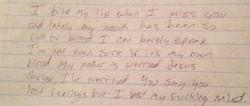 I bite my lip when I miss you
and lately my mouth has been so
full of blood I can barely speak
I'm not even sure its my own
blood My mother is worried Jesus
christ I'm worried. You say you
lost feelings but I lost my fucking mind